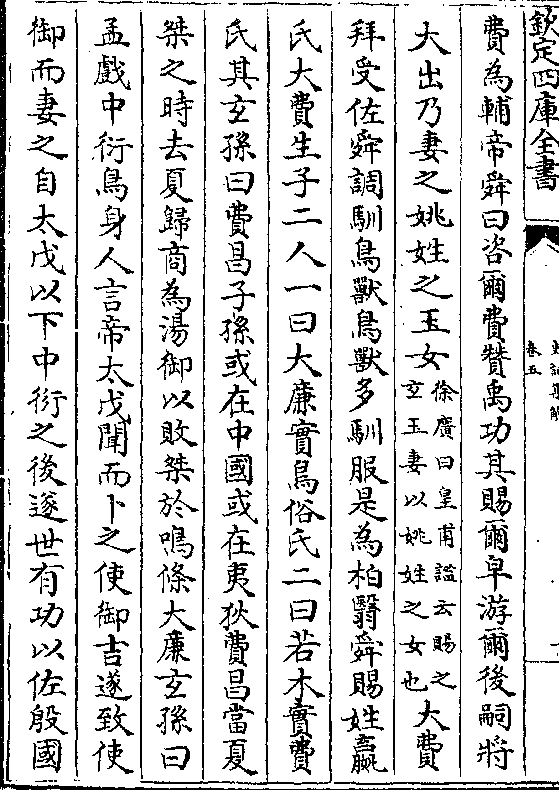 欽定四庫全書
卷五
費為輔帝舜曰咨爾費贊禹功其賜爾皁游爾後嗣將
大出乃妻之姚姓之玉女徐廣曰皇甫謐云賜之玄玉妻以姚姓之女也大費
拜受佐舜調馴鳥獸鳥獸多馴服是為柏翳舜賜姓嬴
氏大費生子二人一曰大廉實鳥俗氏二曰若木實費
氏其玄孫曰費昌子孫或在中國或在夷狄費昌當夏
桀之時去夏歸商為湯御以敗桀於鳴條大廉玄孫曰
孟戲中衍鳥身人言帝太戊聞而卜之使御吉遂致使
御而妻之自太戊以下中衍之後遂世有功以佐殷國